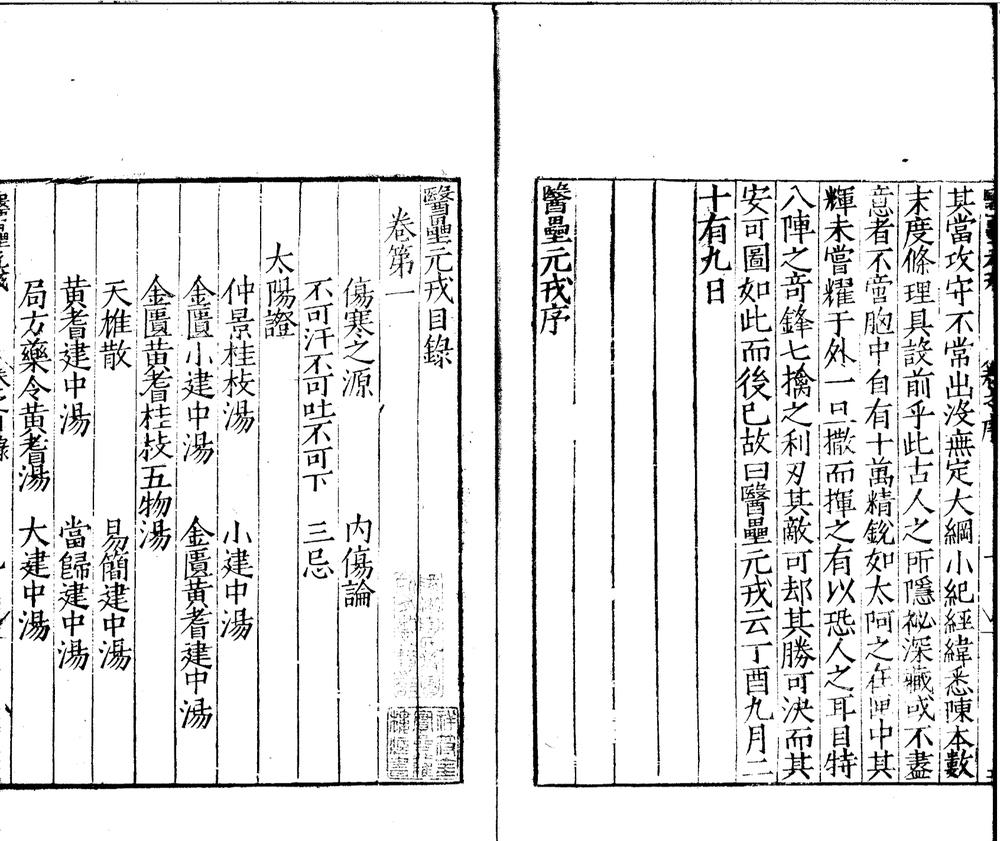 其當攻守不常出没無定大綱小紀經緯悉陳本數
末度條理具設前乎此古人之所隱祕深藏或不盡
意者不啻胸中自有十萬精銳如太阿之在匣中其
輝未嘗耀于外一旦撒而揮之有以恐人之耳目特
八陣之竒鋒七擒之利刃其敵可却其勝可決而其
安可圖如此而後已故曰醫壘元戎云丁酉九月二
十有九日
醫壘元戎序
醫壘元戎目錄
卷第一
傷寒之源 内傷論
不可汗不可吐不可下 三忌
太陽證
仲景桂枝湯 小建中湯
金匱小建中湯 金匱黃耆建中湯
金匱黃耆桂枝五物湯
天雄散 易簡建中湯
黃耆建中湯 當歸建中湯
局方藥令黃耆湯 大建中湯